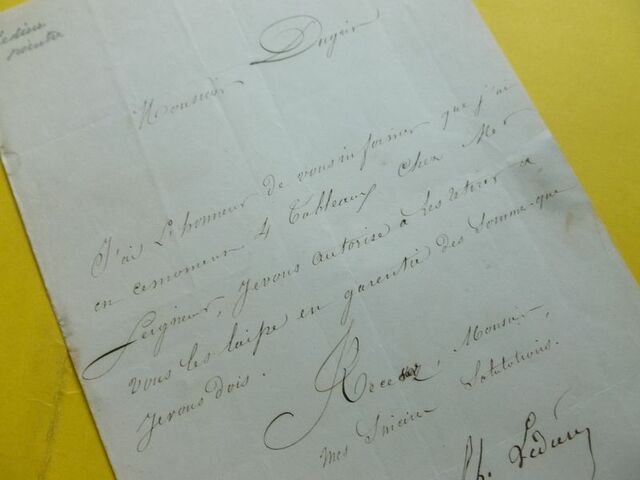 peintre
Monsieur Dugué
J'ai L'honneur de vous informer que j'ai
en cemoment 4 Tableaux Chez Mr
Seigneur, Jevous autorise à Les retirer et
vous les laisse en garentie des Somme que
Jevous dois.
Recevez, Monsieur,
mes Sincères Salutations.
Ch. Ledieu